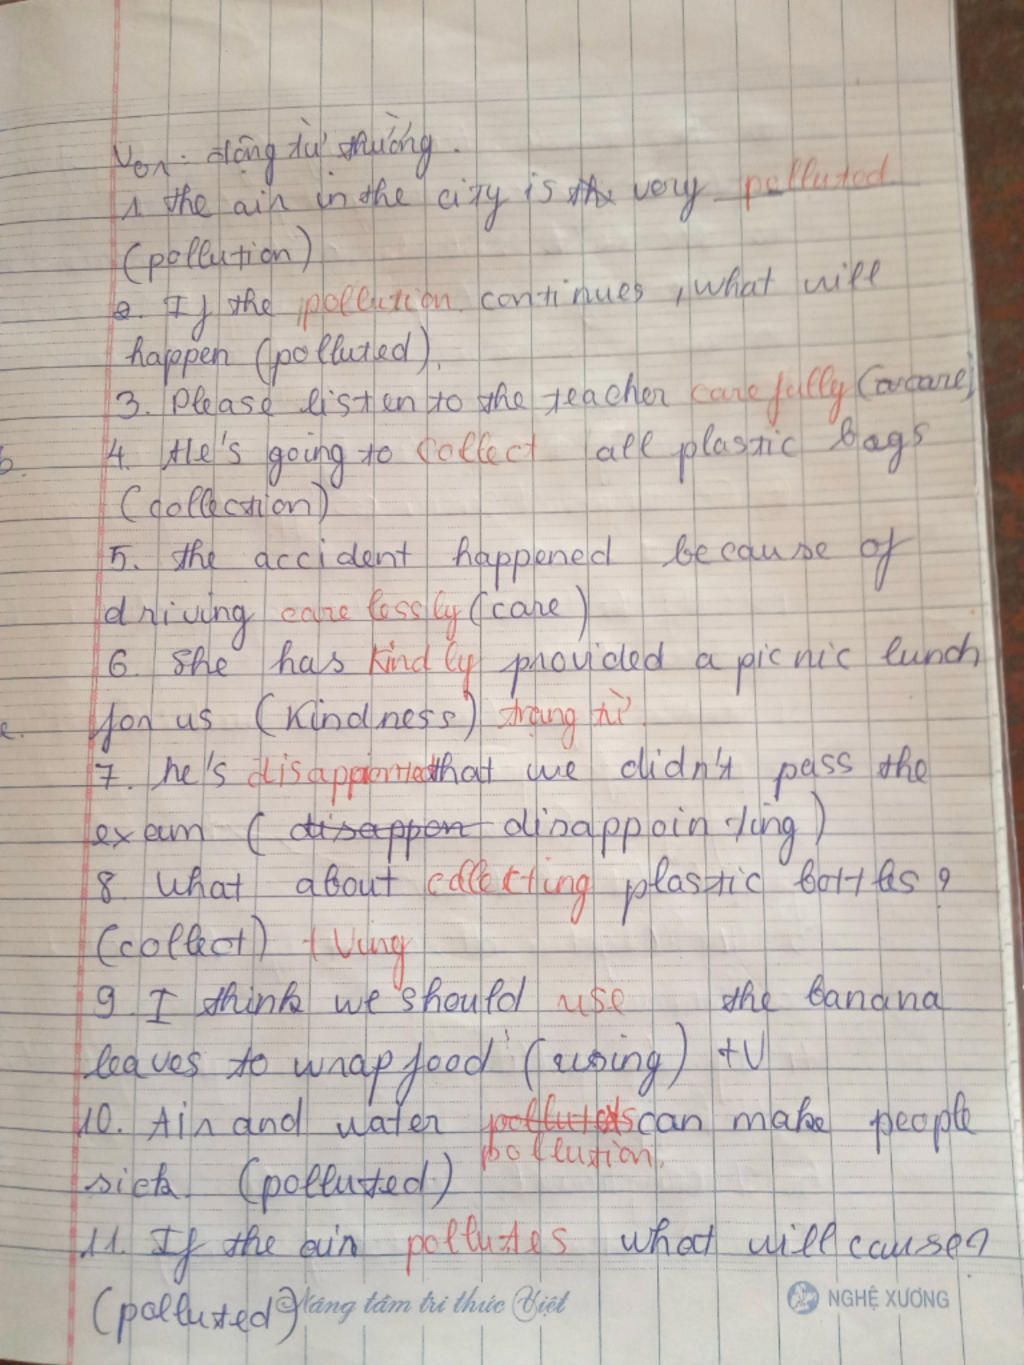 Von: động từ thường.
1 the air in the city is the very polluted
(pollution)
2. If the pollution continues, what will
happen (polluted).
3. Please listen to the teacher carefully (care)
4. He's going to collect all plastic bags
(collection)
5. the accident happened because of
driving carelessly (care)
6 She has kindly provided a picnic lunch
for us (kindness) trạng từ
7. he's disappointed that we didn't pass the
exam (disappon disappointing)
8 what about collecting plastic bottles?
(collect) + Ving
9 I think we should use the banana
leaves to wrap food (using) +V
10. Air and water pollutes can make people
pollution.
sick. (polluted)
11. If the air pollutes what will cause?
(polluted)
Nâng tầm tri thức Việt
NGHỆ XƯƠNG